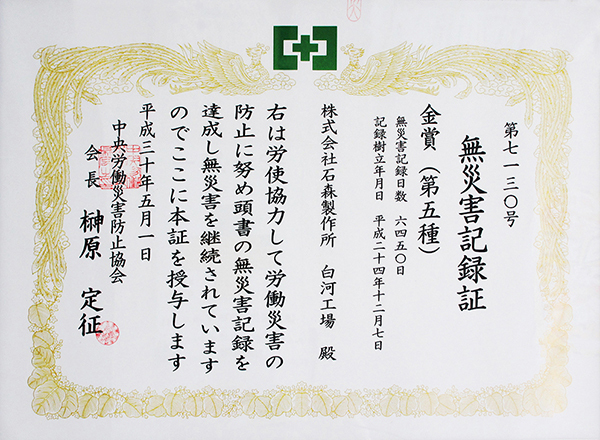 第七一三〇号
無災害記録証
金賞（第五種）
無災害記録日数 六四五〇日
記録樹立年月日 平成二十四年十二月七日
株式会社石森製作所 白河工場 殿
右は労使協力して労働災害の
防止に努め頭書の無災害記録を
達成し無災害を継続されています
のでここに本証を授与します
平成三十年五月一日
中央労働災害防止協会
会長 榊原 定征